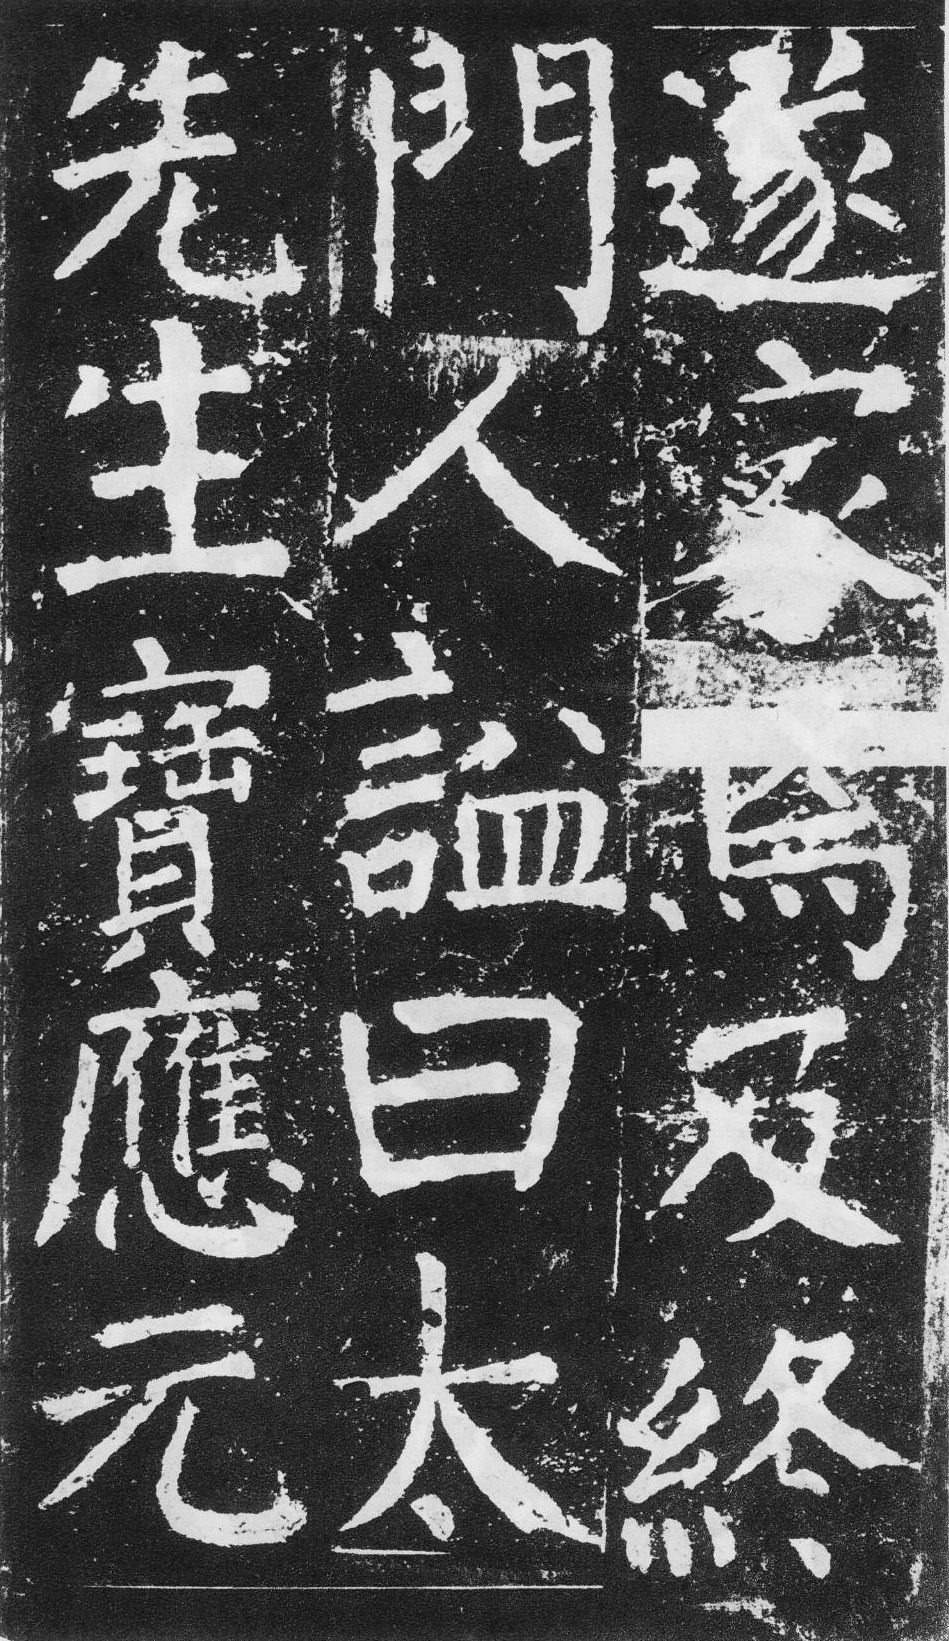 遂家焉及終
門人謚曰太
先生寶應元